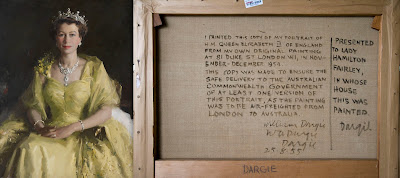 I PAINTED THIS COPY OF MY PORTRAIT OF
H.M. QUEEN ELIZABETH II OF ENGLAND
FROM MY OWN ORIGINAL PAINTING
AT 81 DUKE ST LONDON W1, IN NOVEMBER-DECEMBER. 1954
THIS COPY WAS MADE TO ENSURE THE
SAFE DELIVERY TO THE AUSTRALIAN
COMMONWEALTH GOVERNMENT
OF AT LEAST ONE VERSION OF
THIS PORTRAIT, AS THE PAINTING
WAS TO BE AIR-FREIGHTED FROM
LONDON TO AUSTRALIA
William Dargie
W A Dargie
Dargie
PRESENTED
TO LADY
HAMILTON
FAIRLEY,
IN WHOSE
HOUSE
THIS WAS
PAINTED.
Dargie
DARGIE